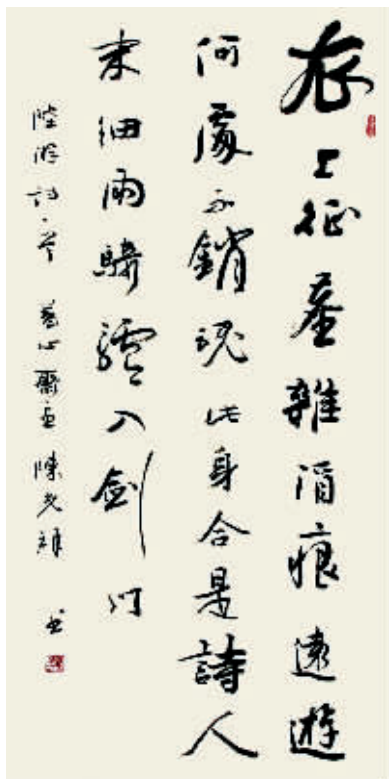 衣上征塵雜酒痕遠遊
何處不銷魂此身合是詩人
未細雨騎驢入劍门
陸游詩一首 心齋主 陳 书